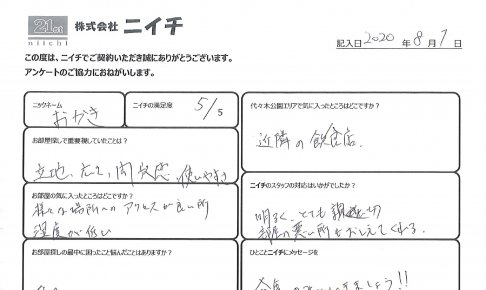 21st
niichi
株式会社 ニイチ
記入日 2020 年 8月 7 日
この度は、ニイチでご契約いただき誠にありがとうございます。
アンケートのご協力におねがいします。
ニックネーム
おかき
ニイチの満足度
5/5
お部屋探しで重要視していたことは?
立地、広さ、間取り 使いやすさ
お部屋の気に入ったところはどこですか?
様々な場所へのアクセスが良い所
湿度が低い
お部屋探しの最中に困ったこと悩んだことはありますか?
代々木公園エリアで気に入ったところはどこですか?
近隣の飲食店
ニイチのスタッフの対応はいかがでしたか?
明るく、とても親切
部屋の悪い所もおしえてくれる
ひとことニイチにメッセージを
ましょう!!